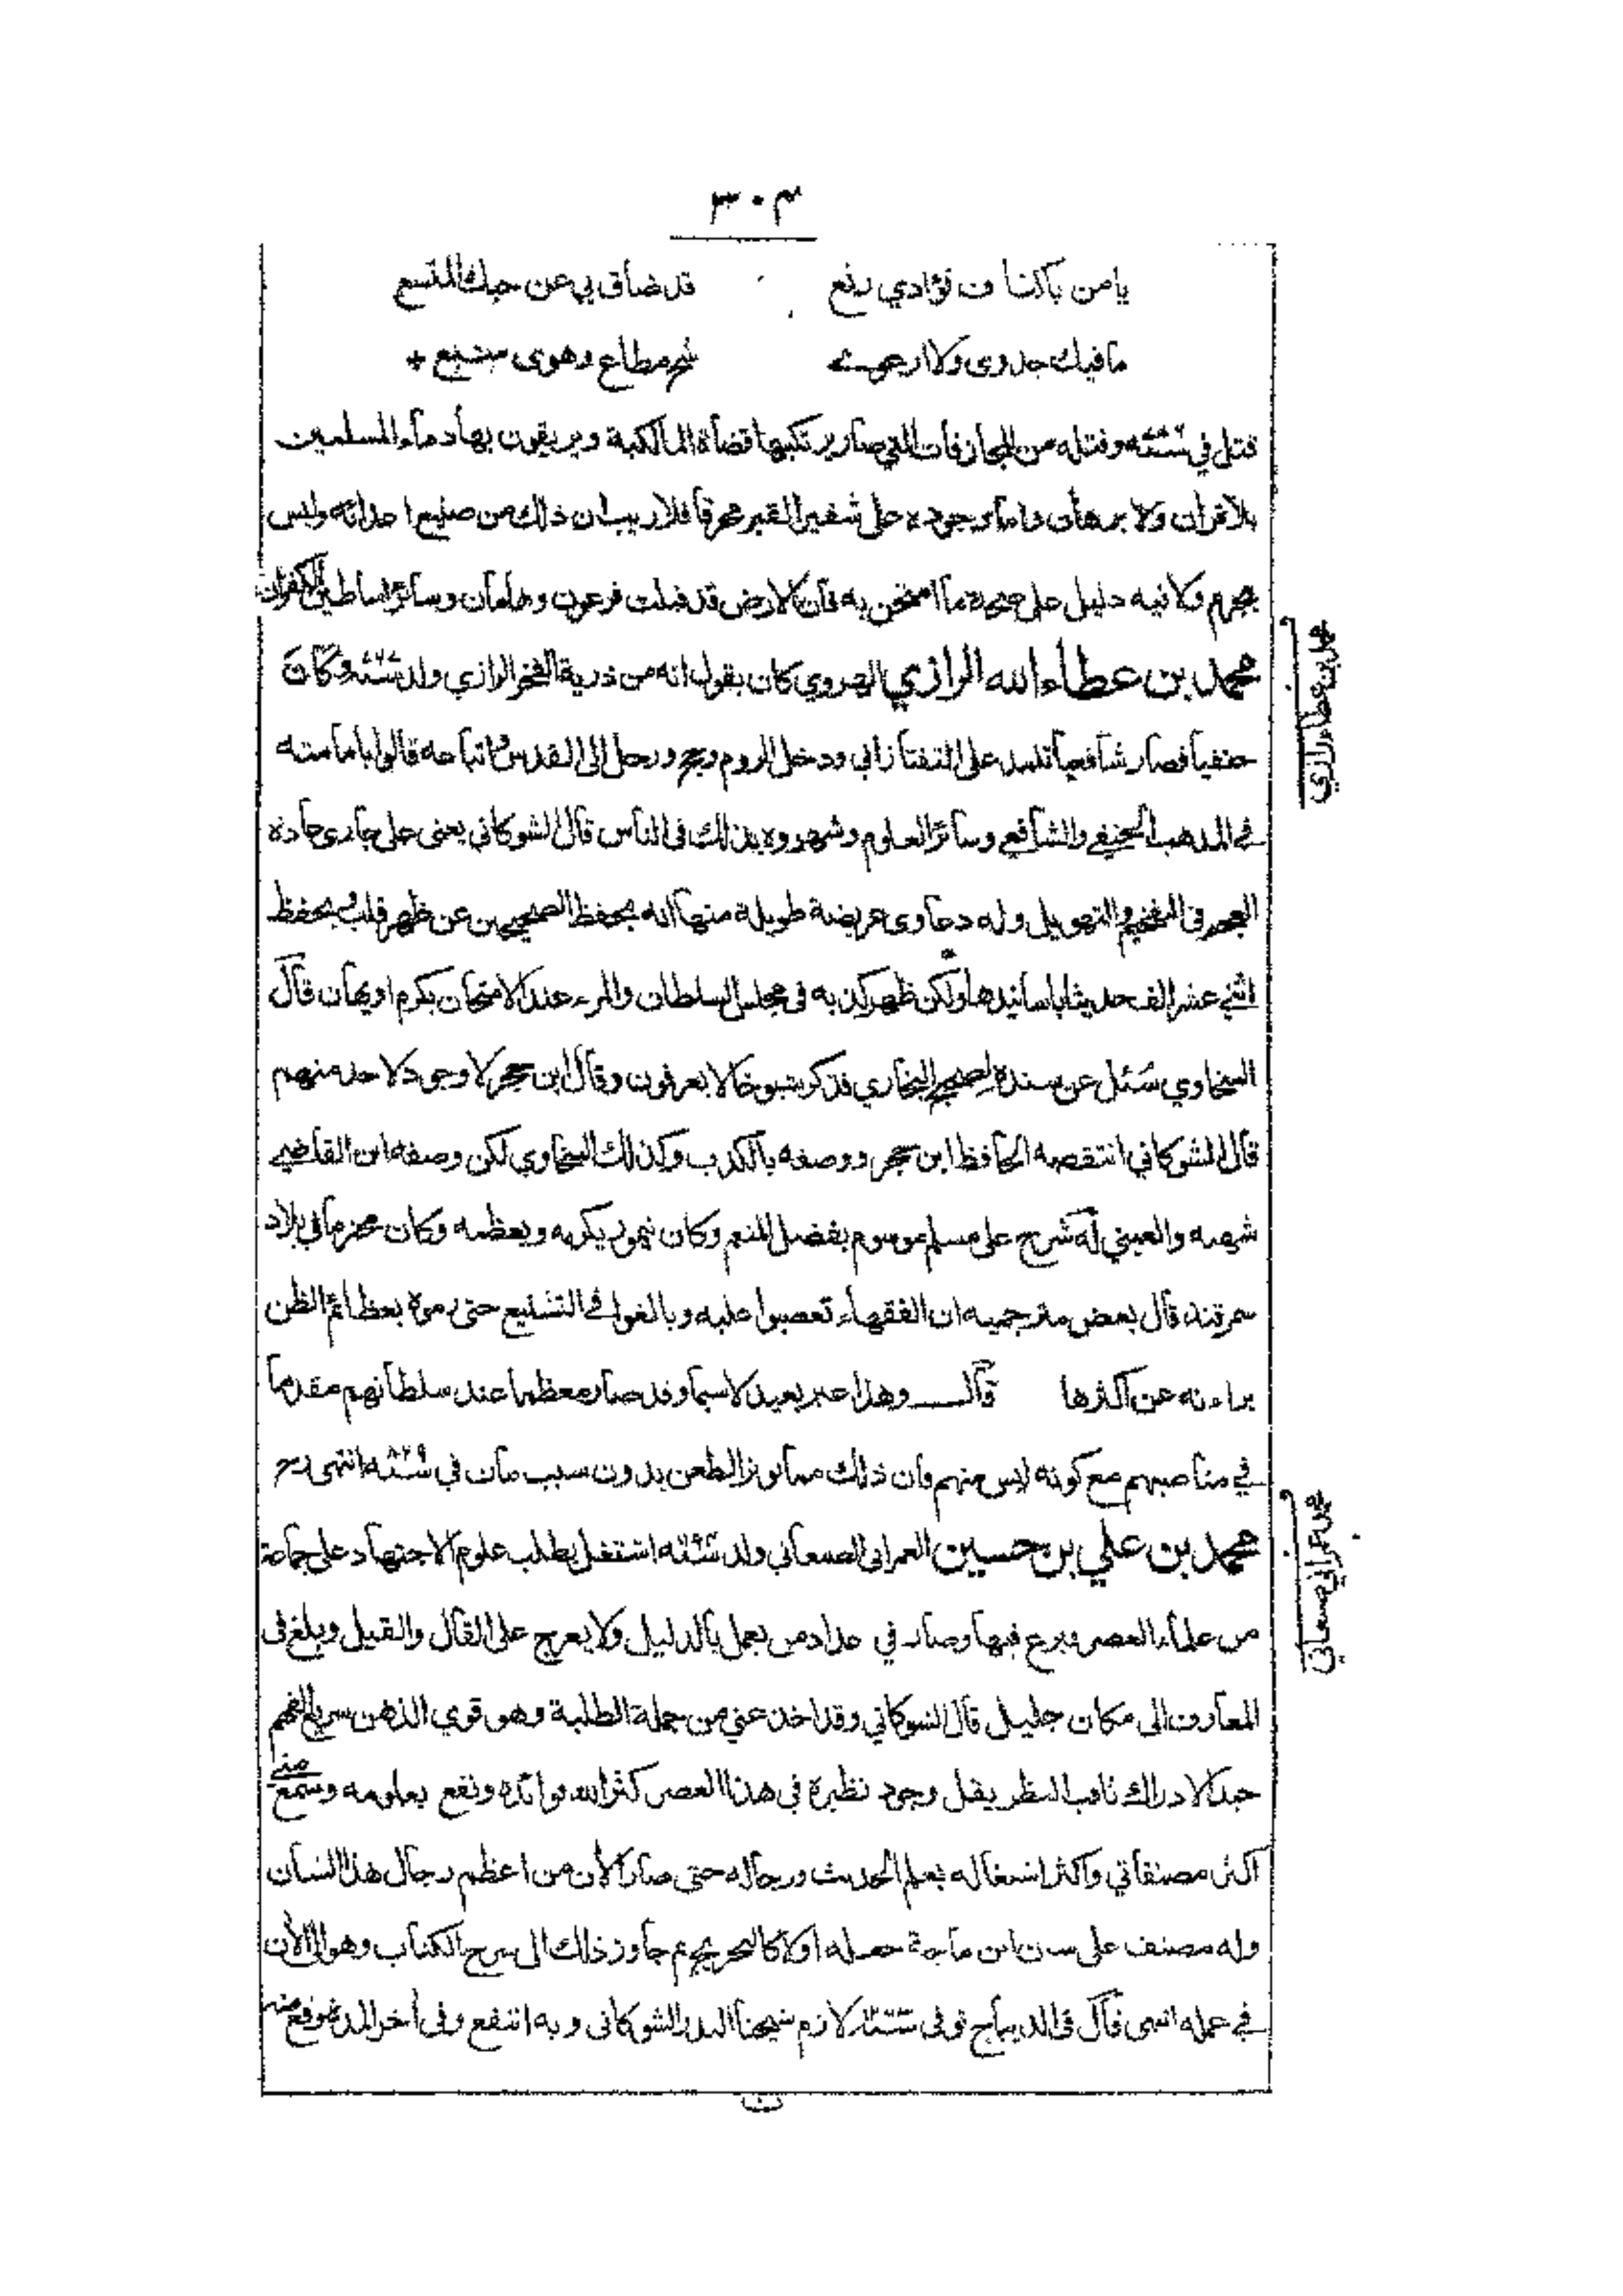 ٣٠٣
يا من باكناف فؤادي رتع قد ضاق بي عن حبك المتسع
ما فيك جدوى ولا ارعوى شح مطاع وهوى متبع +
قتل في سنه وقتله من المجازفات التي صار يرتكبها قضاة المالكية ويريقون بها دماء المسلمين
بلا قرأن ولا برهان واما وجوده على شفير القبر محرقا فلا ريب ان ذلك من صنيع اعدائه وليس
بجرم ولا فيه دليل على صحة ما امتحن به فان الارض قد قبلت فرعون وهامان وسائر اساطين الكفران
محمد بن عطاء الله الرازي الهروي كان يقول انه من ذرية الفخر الرازي ولد سنه وكان
حنفيا فصار شافعيا تلمذ على التفتازاني ودخل الروم وحج ورحل الى القدس اتباعه قالوا بامامته
في المذهب الحنفي والشافعي وسائر العلوم وشهروه بذلك في الناس قال الشوكاني يعني على جاري عادة
العجم في التفخيم والتهويل وله دعاوى عريضة طويلة منها انه يحفظ الصحيحين عن ظهر قلب ويحفظ
اثني عشر الف حديثا باسانيدها ولكن ظهر كذبه في مجلس السلطان والمرء عند الامتحان يكرم او يهان قال
السخاوي سئل عن سنده لصحيح البخاري فذكر شيوخا لا يعرفون وقال ابن حجر لا وجود لاحد منهم
قال الشوكاني انتقصه الحافظ ابن حجر ووصفه بالكذب وكذلك السخاوي لكن وصفه ابن القاضي
شهبه والعيني له شرح على مسلم موسوم بفضل المنعم وكان تيمور يكرمه ويعظمه وكان محترما في بلاد
سمرقند قال بعض مترجميه ان الفقهاء تعصبوا عليه وبالغوا في التشنيع حتى رموه بعظائم الظن
براءته عن اكثرها قال وهذا غير بعيد لاسيما وقد صار معظما عند سلطانهم مقدما
في مناصبهم مع كونه ليس منهم وان ذلك مما يورث الطعن بدون سبب مات في سنه انتهى رح
محمد بن علي بن حسين العمراني الصنعاني ولد سنه اشتغل بطلب علوم الاجتهاد على جماعة
من علماء العصر وبرع فيها وصار في عداد من يعمل بالدليل ولا يعرج على القال والقيل وبلغ في
المعارف الى مكان جليل قال الشوكاني وقد اخذ عني من جملة الطلبة وهو قوي الذهن سريع الفهم
جيد الادراك ثاقب النظر يقل وجود نظيره في هذا العصر كثر الله فوائده ونفع بعلومه وسمع مني
اكثر مصنفاتي واكثر اشتغاله بعلم الحديث ورجاله حتى صار الأن من اعظم رجال هذا الشأن
وله مصنف على سنن ابن ماجة جعله اولا كالتخريج ثم جاوز ذلك الى شرح الكتاب وهو الى الأن
في عمله انتهى قال في الديباج توفي لازم شيخنا البدر الشوكاني وبه انتفع وفي أخر المدة وقع منه
محمد بن عطاء الرازي
محمد عمراني صنعاني